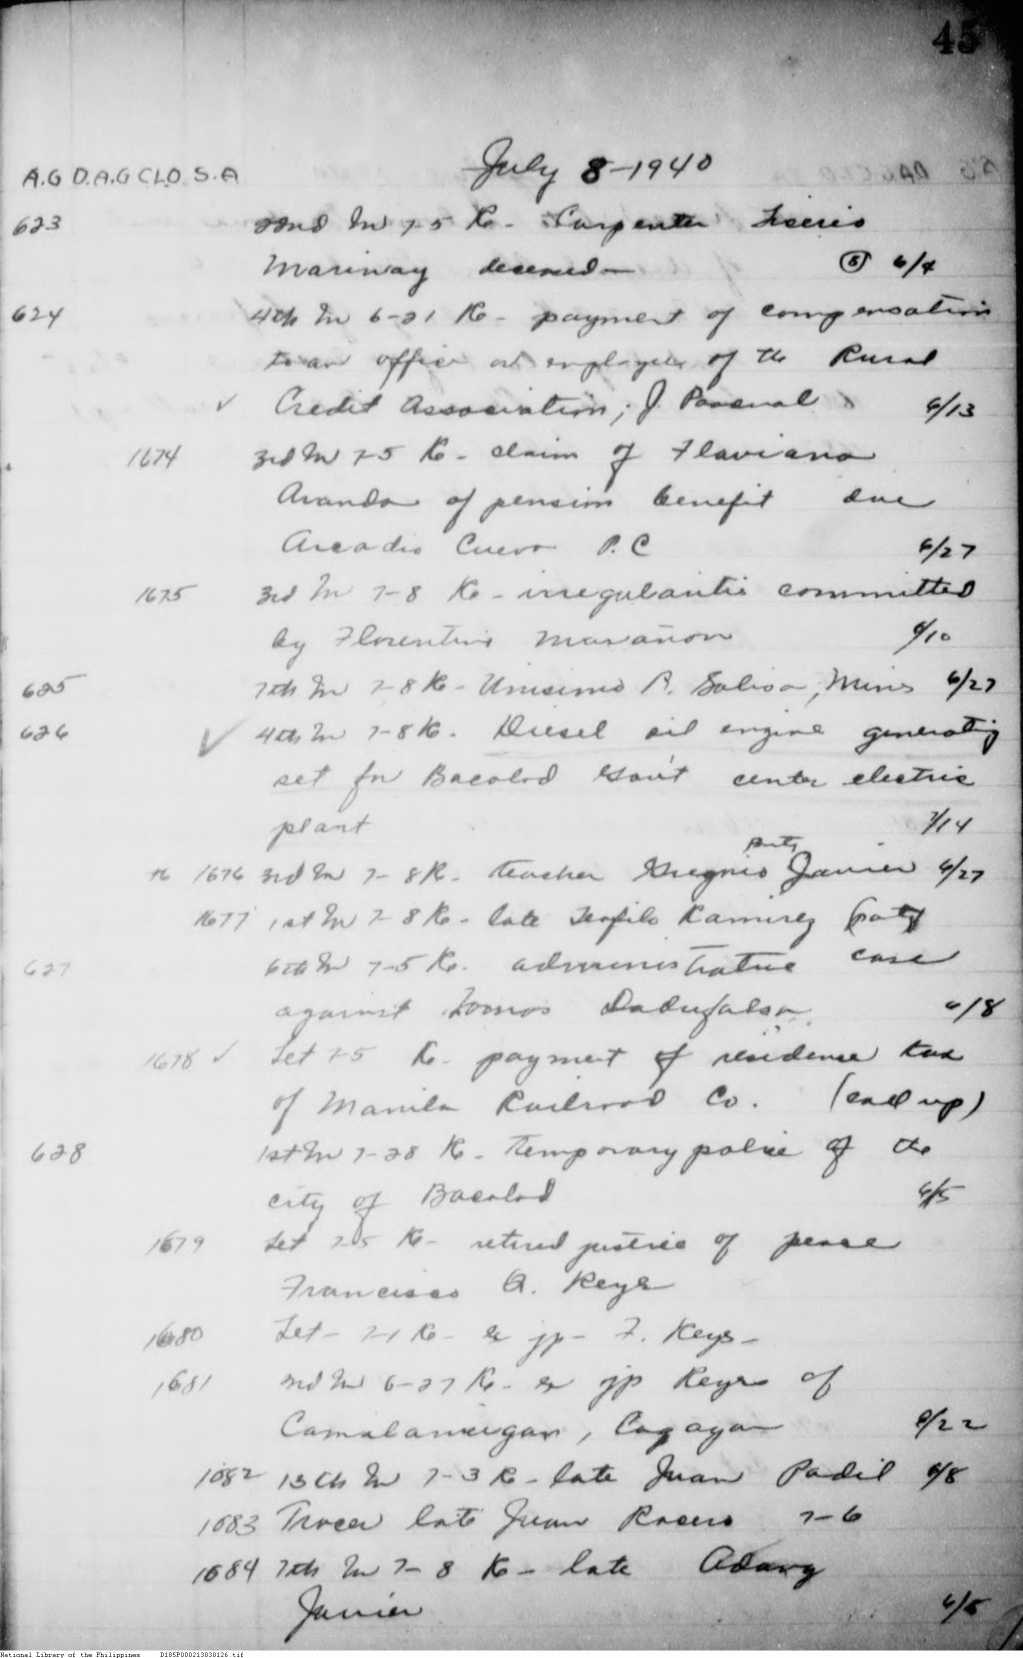 45
July 8-1940
A.G D.A.G C.L.O. S.A
623 22nd In 7-5 K- Carpenter
Mariway deceased- (5) 6/4
624 4th In 6-21 K- payment of compensation
to an officer employee of the Rural
✓ Credit Association; J. Pascual 6/13
1674 3rd In 7-5 K- claim of Flaviana
Aranda of pension benefit due
Arcadio Cueva P.C 6/27
1675 3rd In 7-8 K- irregularities committed
by Florentino Maranon 6/10
625 7th In 7-8 K- R. Mines 6/27
626 ✓ 4th In 7-8 K. Diesel oil engine generating
set for Bacolod Gov't center electric
plant 7/14
1676 3rd In 7-8 K- teacher Gregorio Javier 6/27
1677 1st In 7-8 K- late Teofilo Ramirez
627 6th In 7-5 K. administrative case
against 6/8
1678 ✓ Let 7-5 K- payment of residence tax
of Manila Railroad Co. (call up)
628 1st In 7-28 K- temporary police of the
city of Bacolod 6/5
1679 Let 7-5 K- retired justice of peace
Francisco Q. Keys
1680 Let- 7-1 K- ex jp- F. Keys-
1681 3rd In 6-27 K- ex jp Keys of
Camalaniugan, Cagayan 6/22
1682 13th In 7-3 K- late Juan Padil 6/8
1683 Tracer late Juan 7-6
1684 7th In 7-8 K- late Adang
Javier 6/5
National Library of the Philippines D185P000213838126.tif